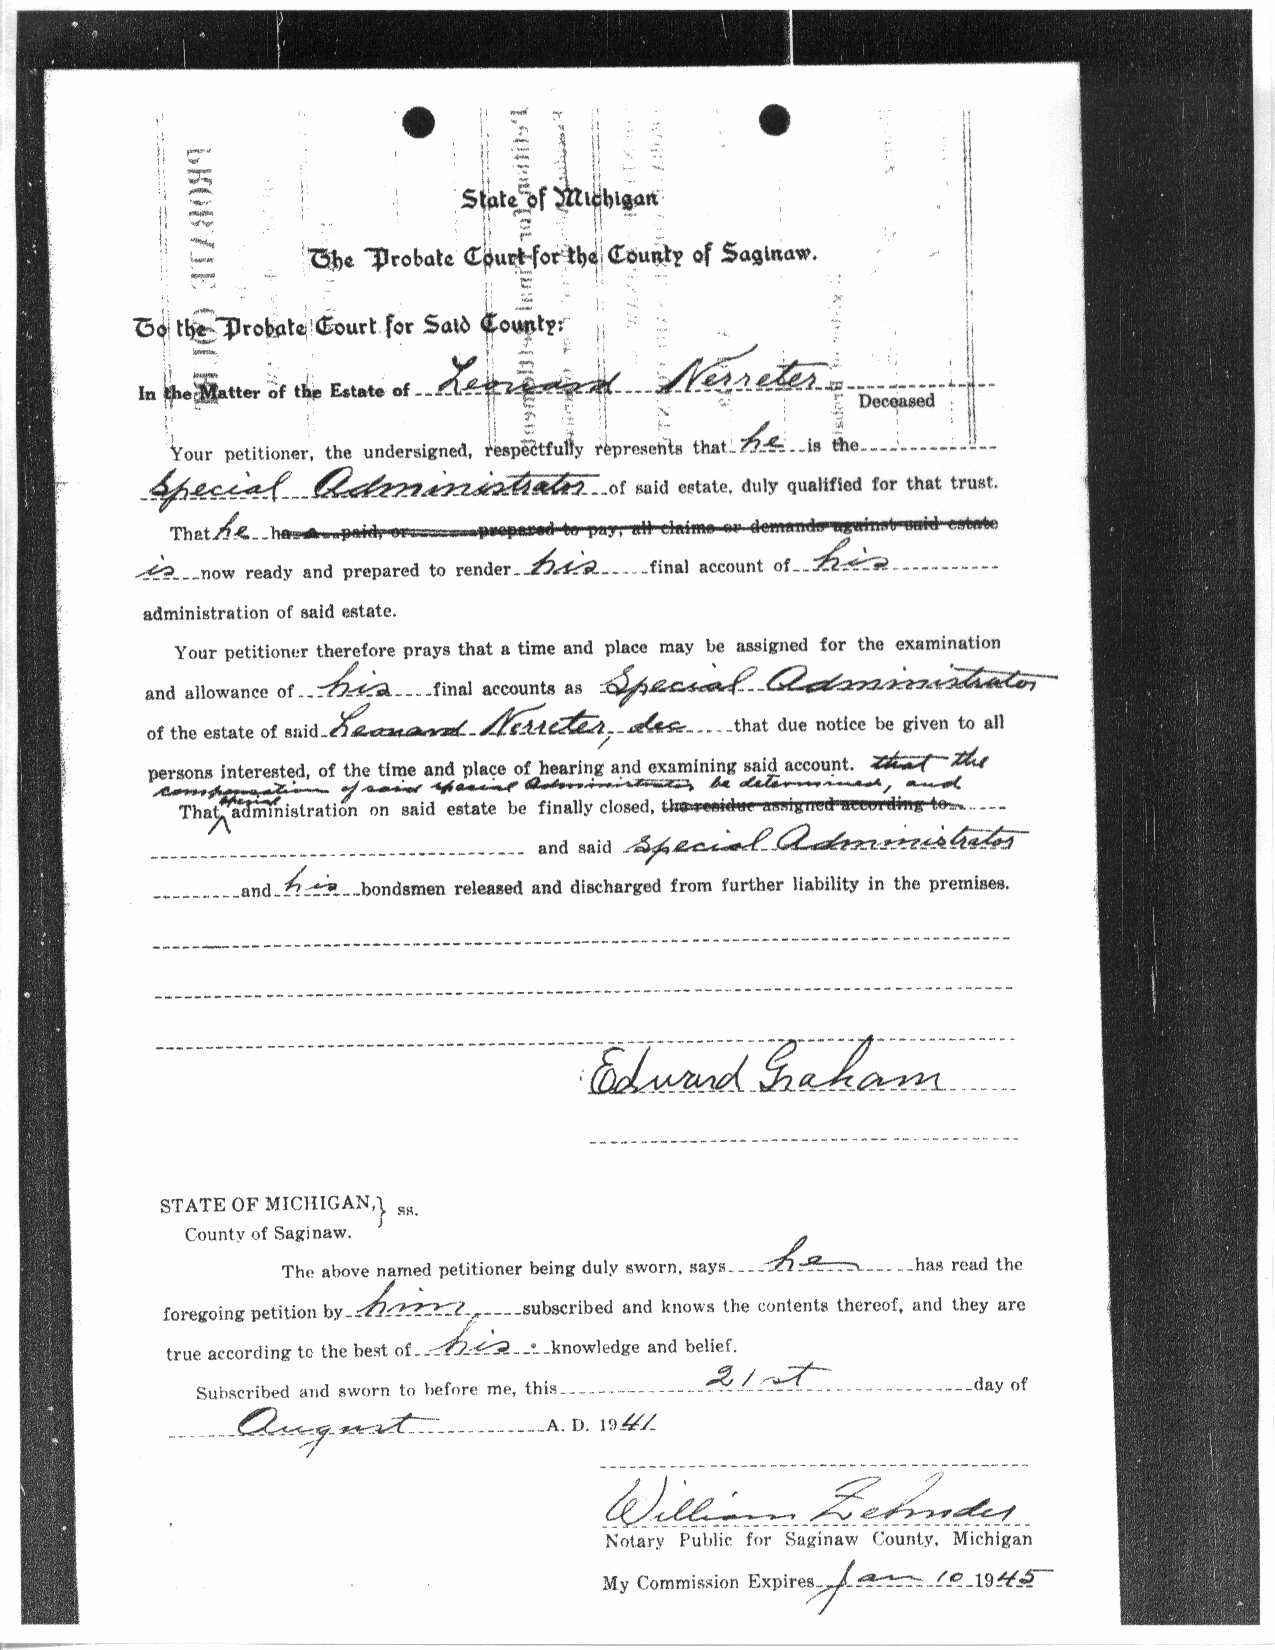 State of Michigan
The Probate Court for the County of Saginaw.
To the Probate Court for Said County:
In the Matter of the Estate of Leonard Nerreter
Deceased
Your petitioner, the undersigned, respectfully represents that he is the
Special Administrator of said estate, duly qualified for that trust.
That he ha s paid, or prepared to pay, all claims or demands against said estate
is now ready and prepared to render his final account of his
administration of said estate.
Your petitioner therefore prays that a time and place may be assigned for the examination
and allowance of his final accounts as Special Administrator
of the estate of said Leonard Nerreter, dec that due notice be given to all
persons interested, of the time and place of hearing and examining said account. that the
compensation of said special Administrator be determined, and
special
That administration on said estate be finally closed, the residue assigned according to
and said Special Administrator
and his bondsmen released and discharged from further liability in the premises.
Edward Graham
STATE OF MICHIGAN,} ss.
County of Saginaw.
The above named petitioner being duly sworn, says he has read the
foregoing petition by him subscribed and knows the contents thereof, and they are
true according to the best of his knowledge and belief.
Subscribed and sworn to before me, this 21st day of
August A. D. 1941
William Zehnder
Notary Public for Saginaw County, Michigan
My Commission Expires Jan 10 1945